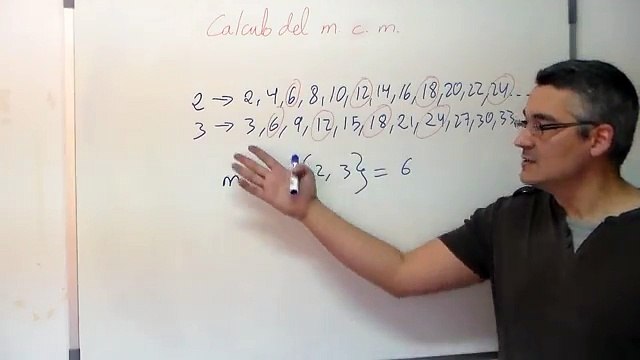 Calculo del m. c. m.
2 → 2, 4, 6, 8, 10, 12, 14, 16, 18, 20, 22, 24...
3 → 3, 6, 9, 12, 15, 18, 21, 24, 27, 30, 33...
2, 3} = 6